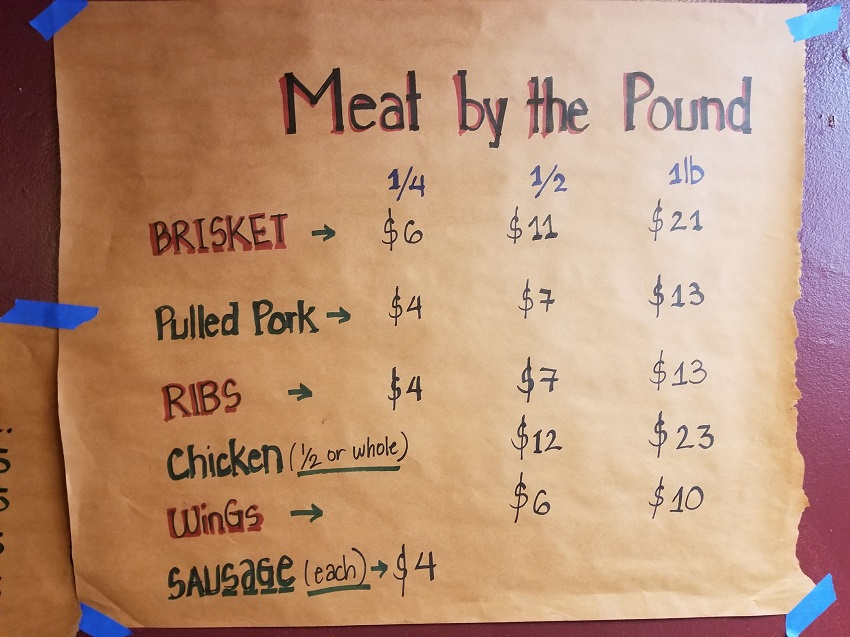 Meat by the Pound
1/4 1/2 1lb
BRISKET → $6 $11 $21
Pulled Pork → $4 $7 $13
RIBS → $4 $7 $13
Chicken (1/2 or whole) $12 $23
WinGs → $6 $10
SAUsaGe (each) → $4